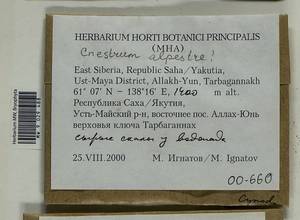 HERBARIUM HORTI BOTANICI PRINCIPALIS
(MHA)
Cnestrum alpestre!
East Siberia, Republic Saha/Yakutia,
Ust-Maya District, Allakh-Yun, Tarbagannakh
61° 07' N - 138°16' E, 1400 m alt.
Республика Саха/Якутия,
Усть-Майский р-н, восточнее пос. Аллах-Юнь
верховья ключа Тарбаганнах
сырые скалы у водопада
25.VIII.2000 М. Игнатов / M. Ignatov
00-660